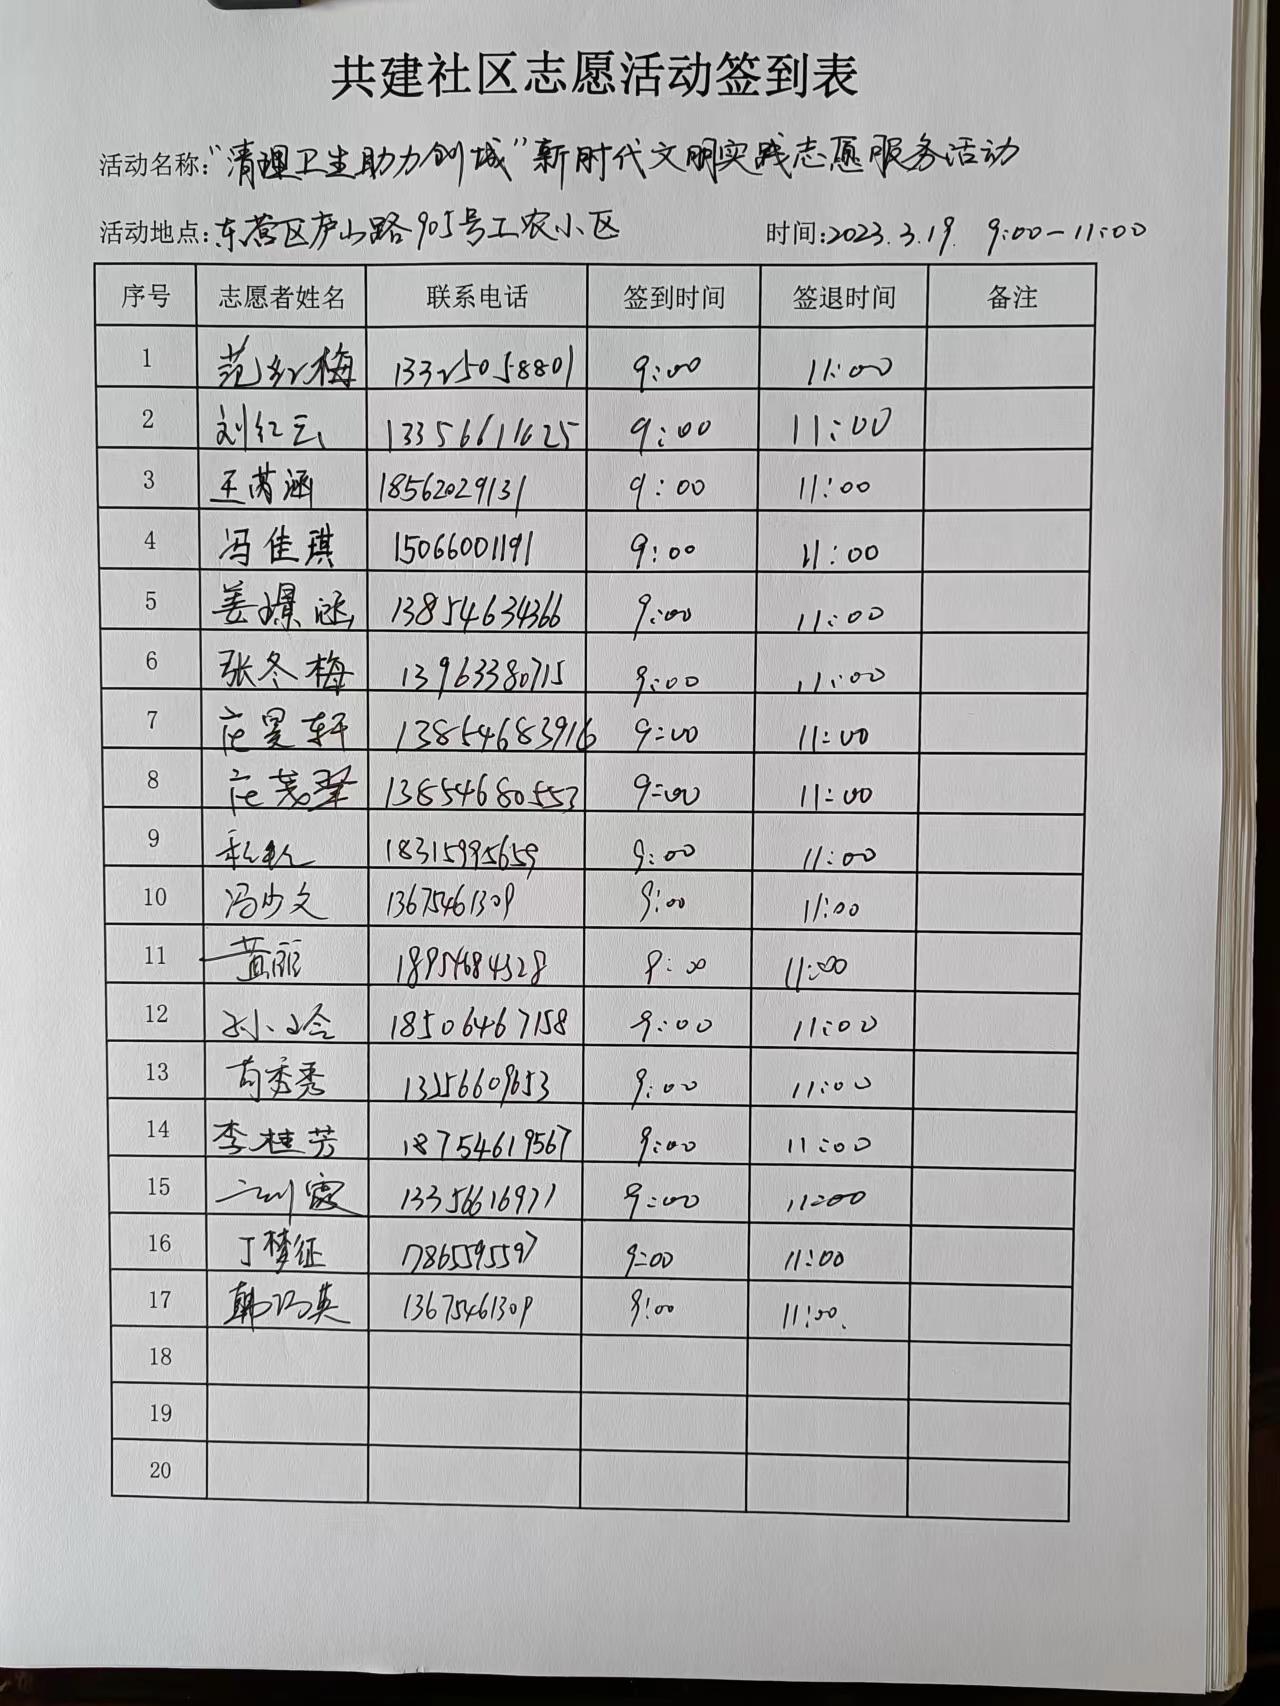 共建社区志愿活动签到表
活动名称:“清理卫生助力创城”新时代文明实践志愿服务活动
活动地点:东营区庐山路905号工农小区 时间:2023.3.19. 9:00-11:00
序号 志愿者姓名 联系电话 签到时间 签退时间 备注
1 范红梅 13325058801 9:00 11:00
2 刘红云 13356611625 9:00 11:00
3 王芮涵 18562029131 9:00 11:00
4 冯佳琪 15066001191 9:00 11:00
5 姜璟涵 13854634366 9:00 11:00
6 张冬梅 13963380715 9:00 11:00
7 庄昊轩 13854683916 9:00 11:00
8 13854680553 9:00 11:00
9 18315995659 9:00 11:00
10 冯少文 13675461309 9:00 11:00
11 黄丽 18954684328 9:00 11:00
12 18506467158 9:00 11:00
13 苟秀秀 13256609653 9:00 11:00
14 李桂芳 18754619567 9:00 11:00
15 13356616971 9:00 11:00
16 丁梦征 17865595597 9:00 11:00
17 韩巧英 13675461309 9:00 11:00.
18
19
20